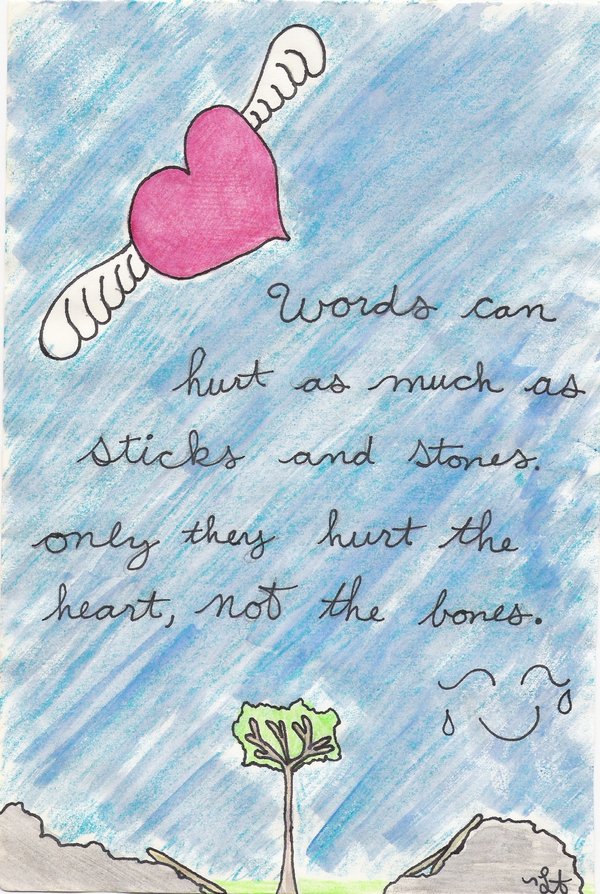 Words can
hurt as much as
sticks and stones.
only they hurt the
heart, not the bones.